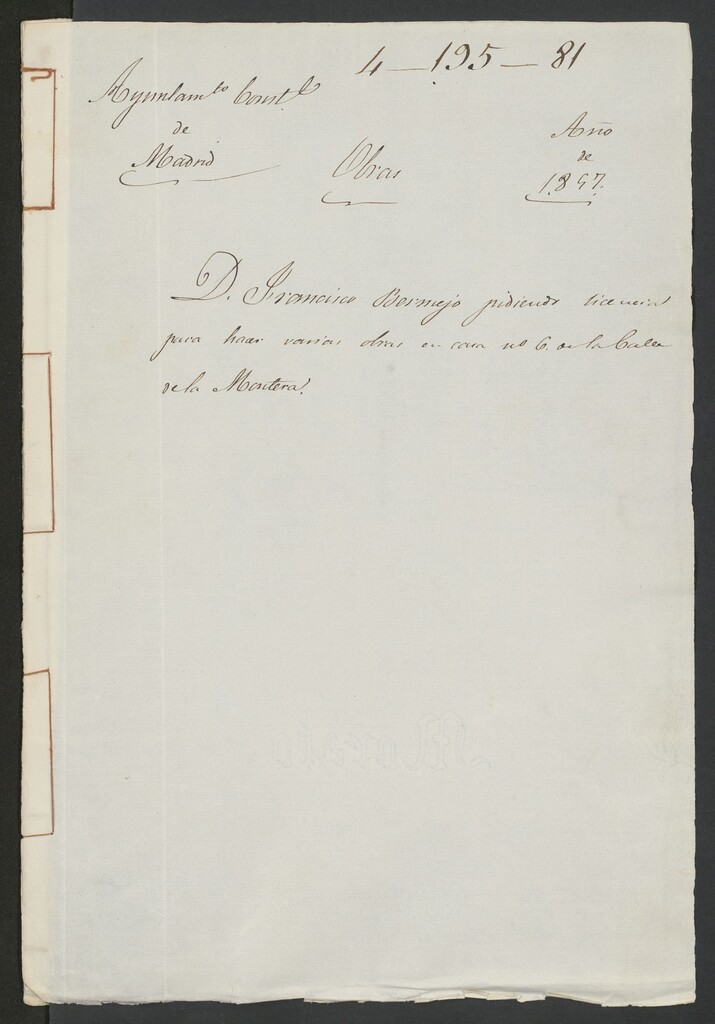 4 — 195 — 81
Ayuntam.to Const.l
de
Madrid
Obras
Año
de
1857.
D. Francisco Bermejo pidiendo licencia
para hacer varias obras en casa nº 6. de la Calle
de la Montera.